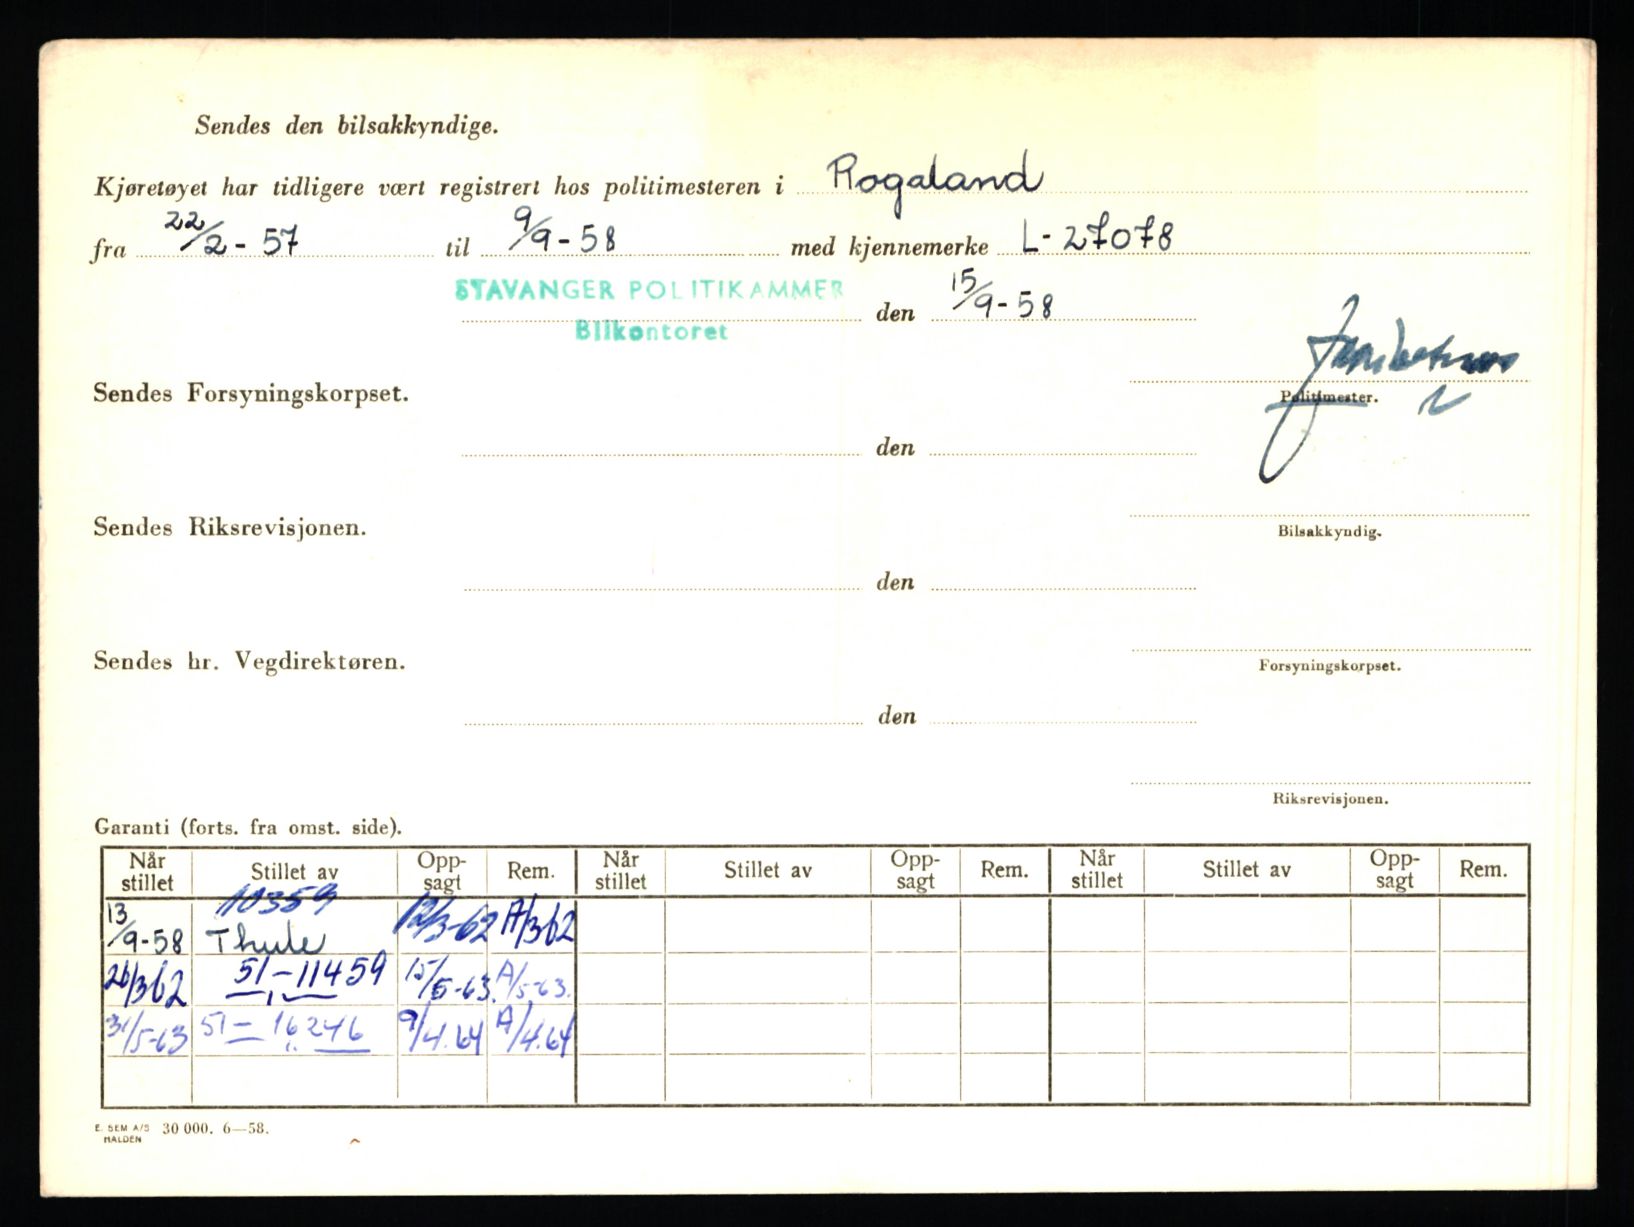 Sendes den bilsakkyndige.
Kjøretøyet har tidligere vært registrert hos politimesteren i Rogaland
fra 22/2-57 til 9/9-58 med kjennemerke L-27078
STAVANGER POLITIKAMMER den 15/9-58
Bilkontoret
Sendes Forsyningskorpset.
Politimester.
den
Sendes Riksrevisjonen.
Bilsakkyndig.
den
Sendes hr. Vegdirektøren.
Forsyningskorpset.
den
Riksrevisjonen.
Garanti (forts. fra omst. side).
Når stillet Stillet av Opp-sagt Rem. Når stillet Stillet av Opp-sagt Rem. Når stillet Stillet av Opp-sagt Rem.
10359
13/9-58 Thule 12/3-62 A/362
26/362 51-11459 15/5-63. A/5-63.
31/5-63 51-16246 9/4.64 A/4.64
E. SEM A/S 30 000. 6—58.
HALDEN